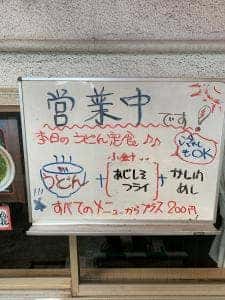 営業中
です!
本日のうどん定食♪♪
いぃべんも
OK
小盛り
うどん + あじしろフライ + かしわめし
すべてのメニューからプラス200円